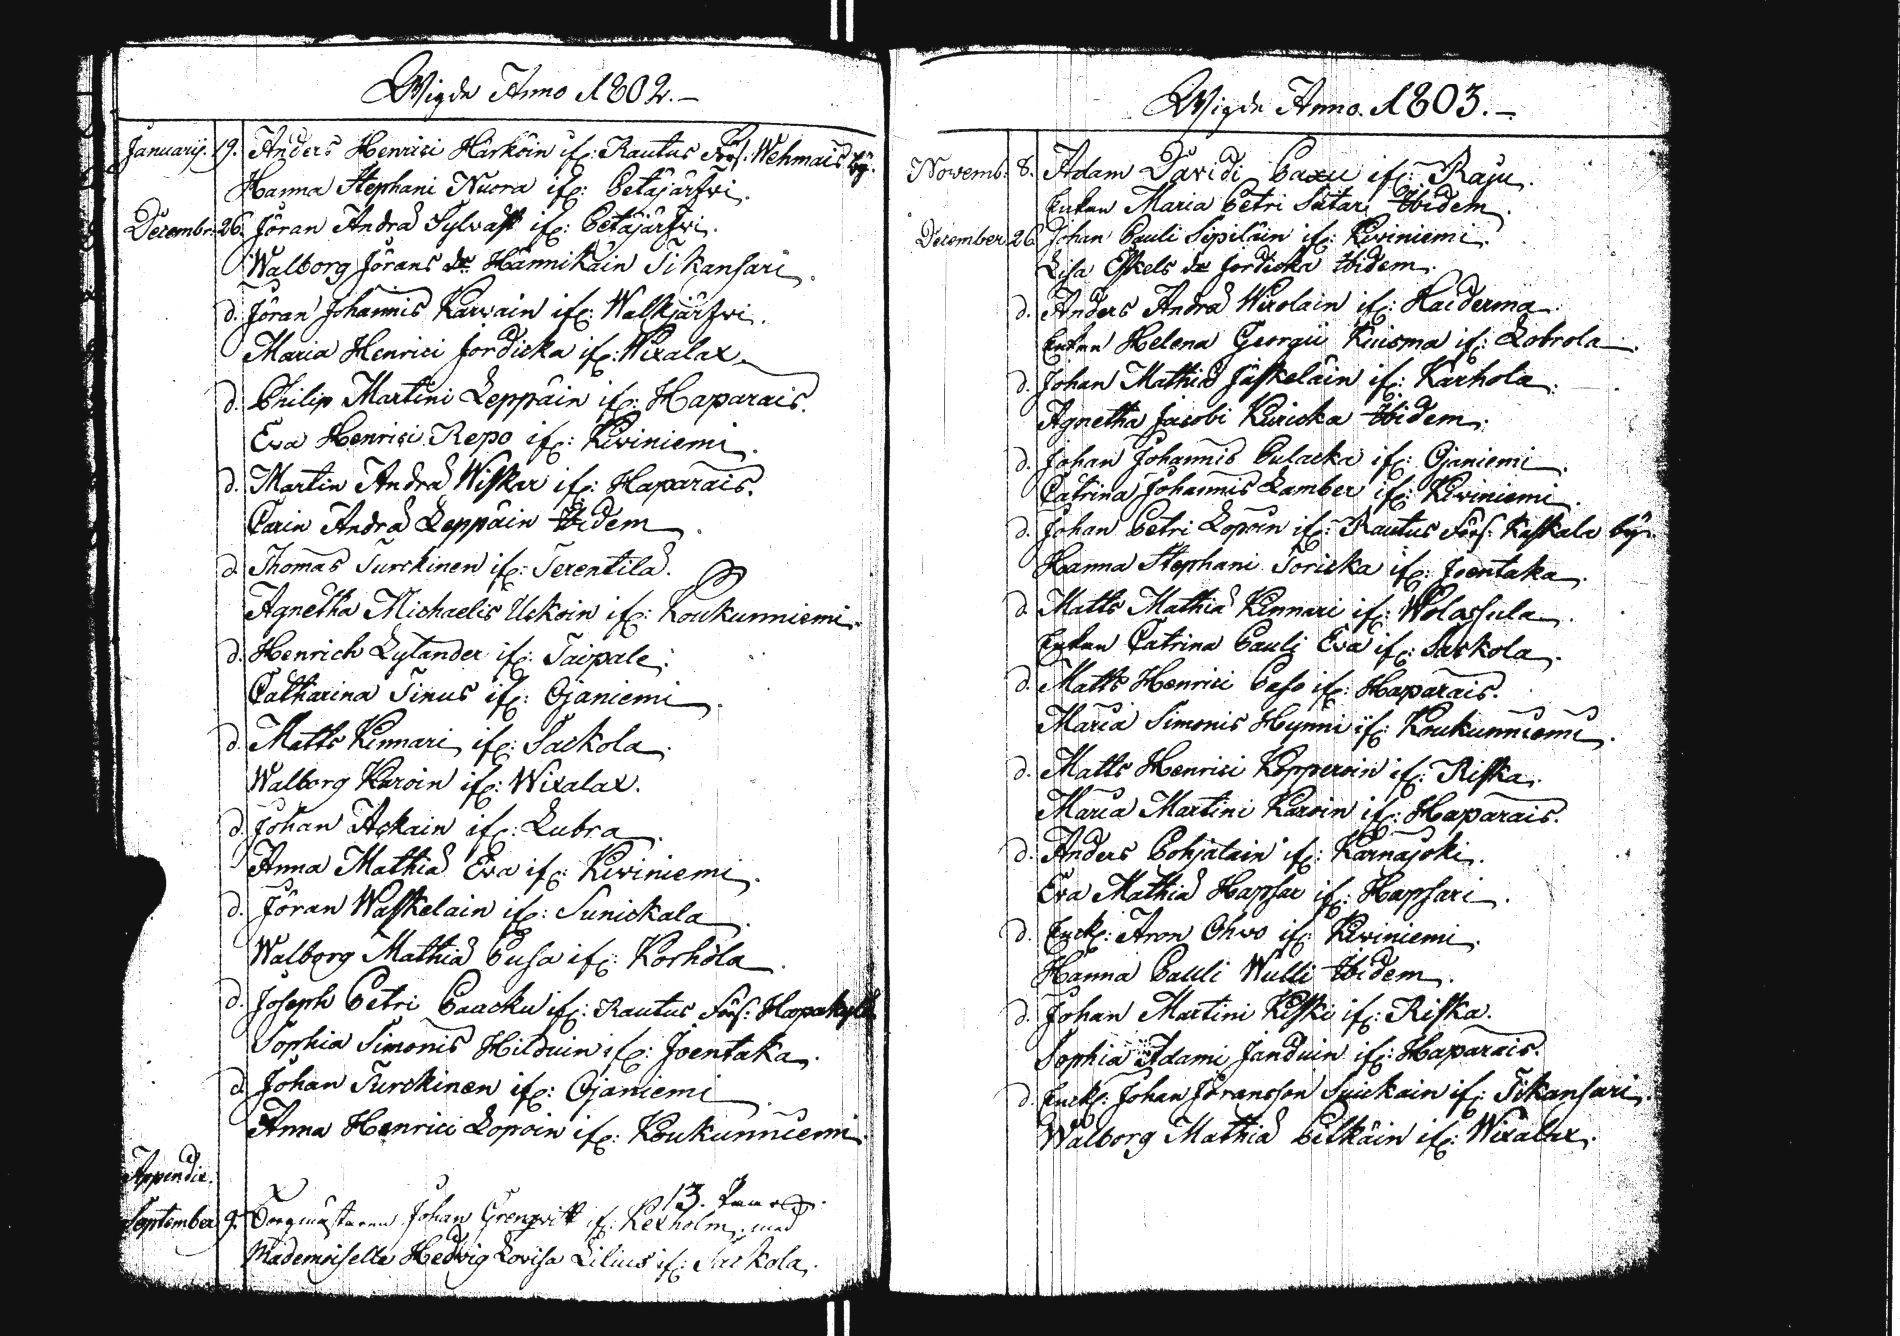 Wigde Anno 1802.
Januarij. 19. Anders Henrici Härköin ifr: Rautus Förs. Wehmais bÿ.
Hanna Stephani Nuora ifr: Petäjärfwi.
Decembr. 26. Jöran Andræ Sylvast ifr: Petäjärfwi.
Walborg Jörans dr Hännikäin Tikansari.
d. Jöran Johannis Karvain ifr: Walkjärfwi.
Maria Henrici Jordicka ifr: Wixalax.
d. Philip Martini Leppäin ifr: Haparais.
Eva Henrici Repo ifr: Kiviniemi.
d. Martin Andræ Wiskar ifr: Haparais.
Carin Andræ Leppäin Ibidem.
d. Thomas Turckinen ifr: Terentilä.
Agnetha Michaelis Uckoin ifr: Koukunniemi.
d. Henrich Lytander ifr: Taipale.
Catharina Sinus ifr: Ojaniemi.
d. Matts Kinnari ifr: Sackola.
Walborg Karoin ifr: Wixalax.
d. Johan Ackain ifr: Lubra.
Anna Mathiæ Eva ifr: Kiviniemi.
d. Jöran Waskelain ifr: Sunickala.
Walborg Mathiæ Pusa ifr: Korhola.
d. Joseph Petri Paacku ifr: Rautus Förs: Haapakylä
Sophia Simonis Hilduin ifr: Joentaka.
d. Johan Turckinen ifr: Ojaniemi.
Anna Henrici Lopoin ifr: Koukunniemi.
13. Paar
Appendix.
September 9. Borgmästaren Johan Grenqvist ifr: Kexholm, med
Mademoiselle Hedvig Lovisa Lilius ifr: Sackola.
Wigde Anno. 1803.
Novemb: 8. Adam Davidi Paxu ifr: Raju.
Enkan Maria Petri Sutar Ibidem.
December. 26. Johan Pauli Sipiläin ifr: Kiviniemi.
Lisa Eskels dr Jordicka Ibidem.
d. Anders Andræ Wirolain ifr: Haiderma.
Enkan Helena Georgii Kuisma ifr: Lobrola.
d. Johan Mathiæ Jäskeläin ifr: Karhola.
Agnetha Jacobi Kuricka Ibidem.
d. Johan Johannis Pulacka ifr: Ojaniemi.
Catrina Johannis Lamber ifr: Kiviniemi.
d. Johan Petri Lopoin ifr: Rautus Förs: Kaskala bÿ.
Hanna Stephani Toricka ifr: Joentaka.
d. Matts Mathiæ Kinnari ifr: Wolassula.
Enkan Catrina Pauli Eva ifr: Sackola.
d. Matts Henrici Paso ifr: Haparais.
Maria Simonis Hynni ifr: Koukunniemi.
d. Matts Henrici Kopperoin ifr: Riska.
Maria Martini Karoin ifr: Haparais.
d. Anders Pohjalain ifr: Karnajoki.
Eva Mathiæ Hapsar ifr: Hapsari.
d. Enckl: Aron Ohvo ifr: Kiviniemi.
Hanna Pauli Wulli Ibidem.
d. Johan Martini Kiski ifr: Riska.
Sophia Adami Janduin ifr: Haparais.
d. Enckl: Johan Jöransson Suickain ifr: Tikansari.
Walborg Mathiæ Pelkäin ifr: Wixalax.